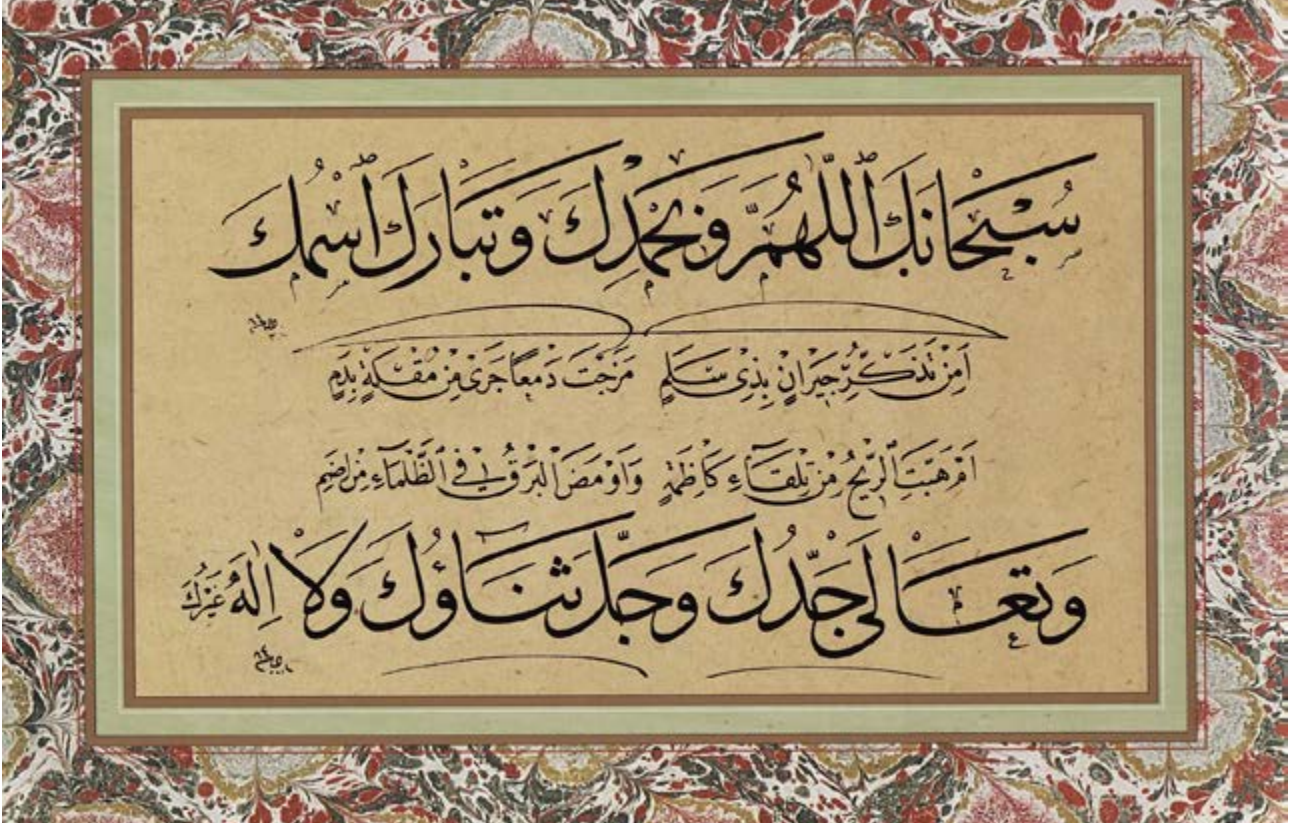 سُبْحَانَكَ اللّٰهُمَّ وَبِحَمْدِكَ وَتَبَارَكَ اسْمُكَ
اَمِنْ تَذَكُّرِ جِيرَانٍ بِذِى سَلَمٍ مَزَجْتَ دَمْعًا جَرٰى مِنْ مُقْلَةٍ بِدَمِ
اَمْ هَبَّتِ الرِّيحُ مِنْ تِلْقَآءِ كَاظِمَةٍ وَاَوْمَضَ الْبَرْقُ فِى الظَّلْمَآءِ مِنْ اِضَمِ
وَتَعَالٰى جَدُّكَ وَجَلَّ ثَنَاؤُكَ وَلَا اِلٰهَ غَيْرُكَ